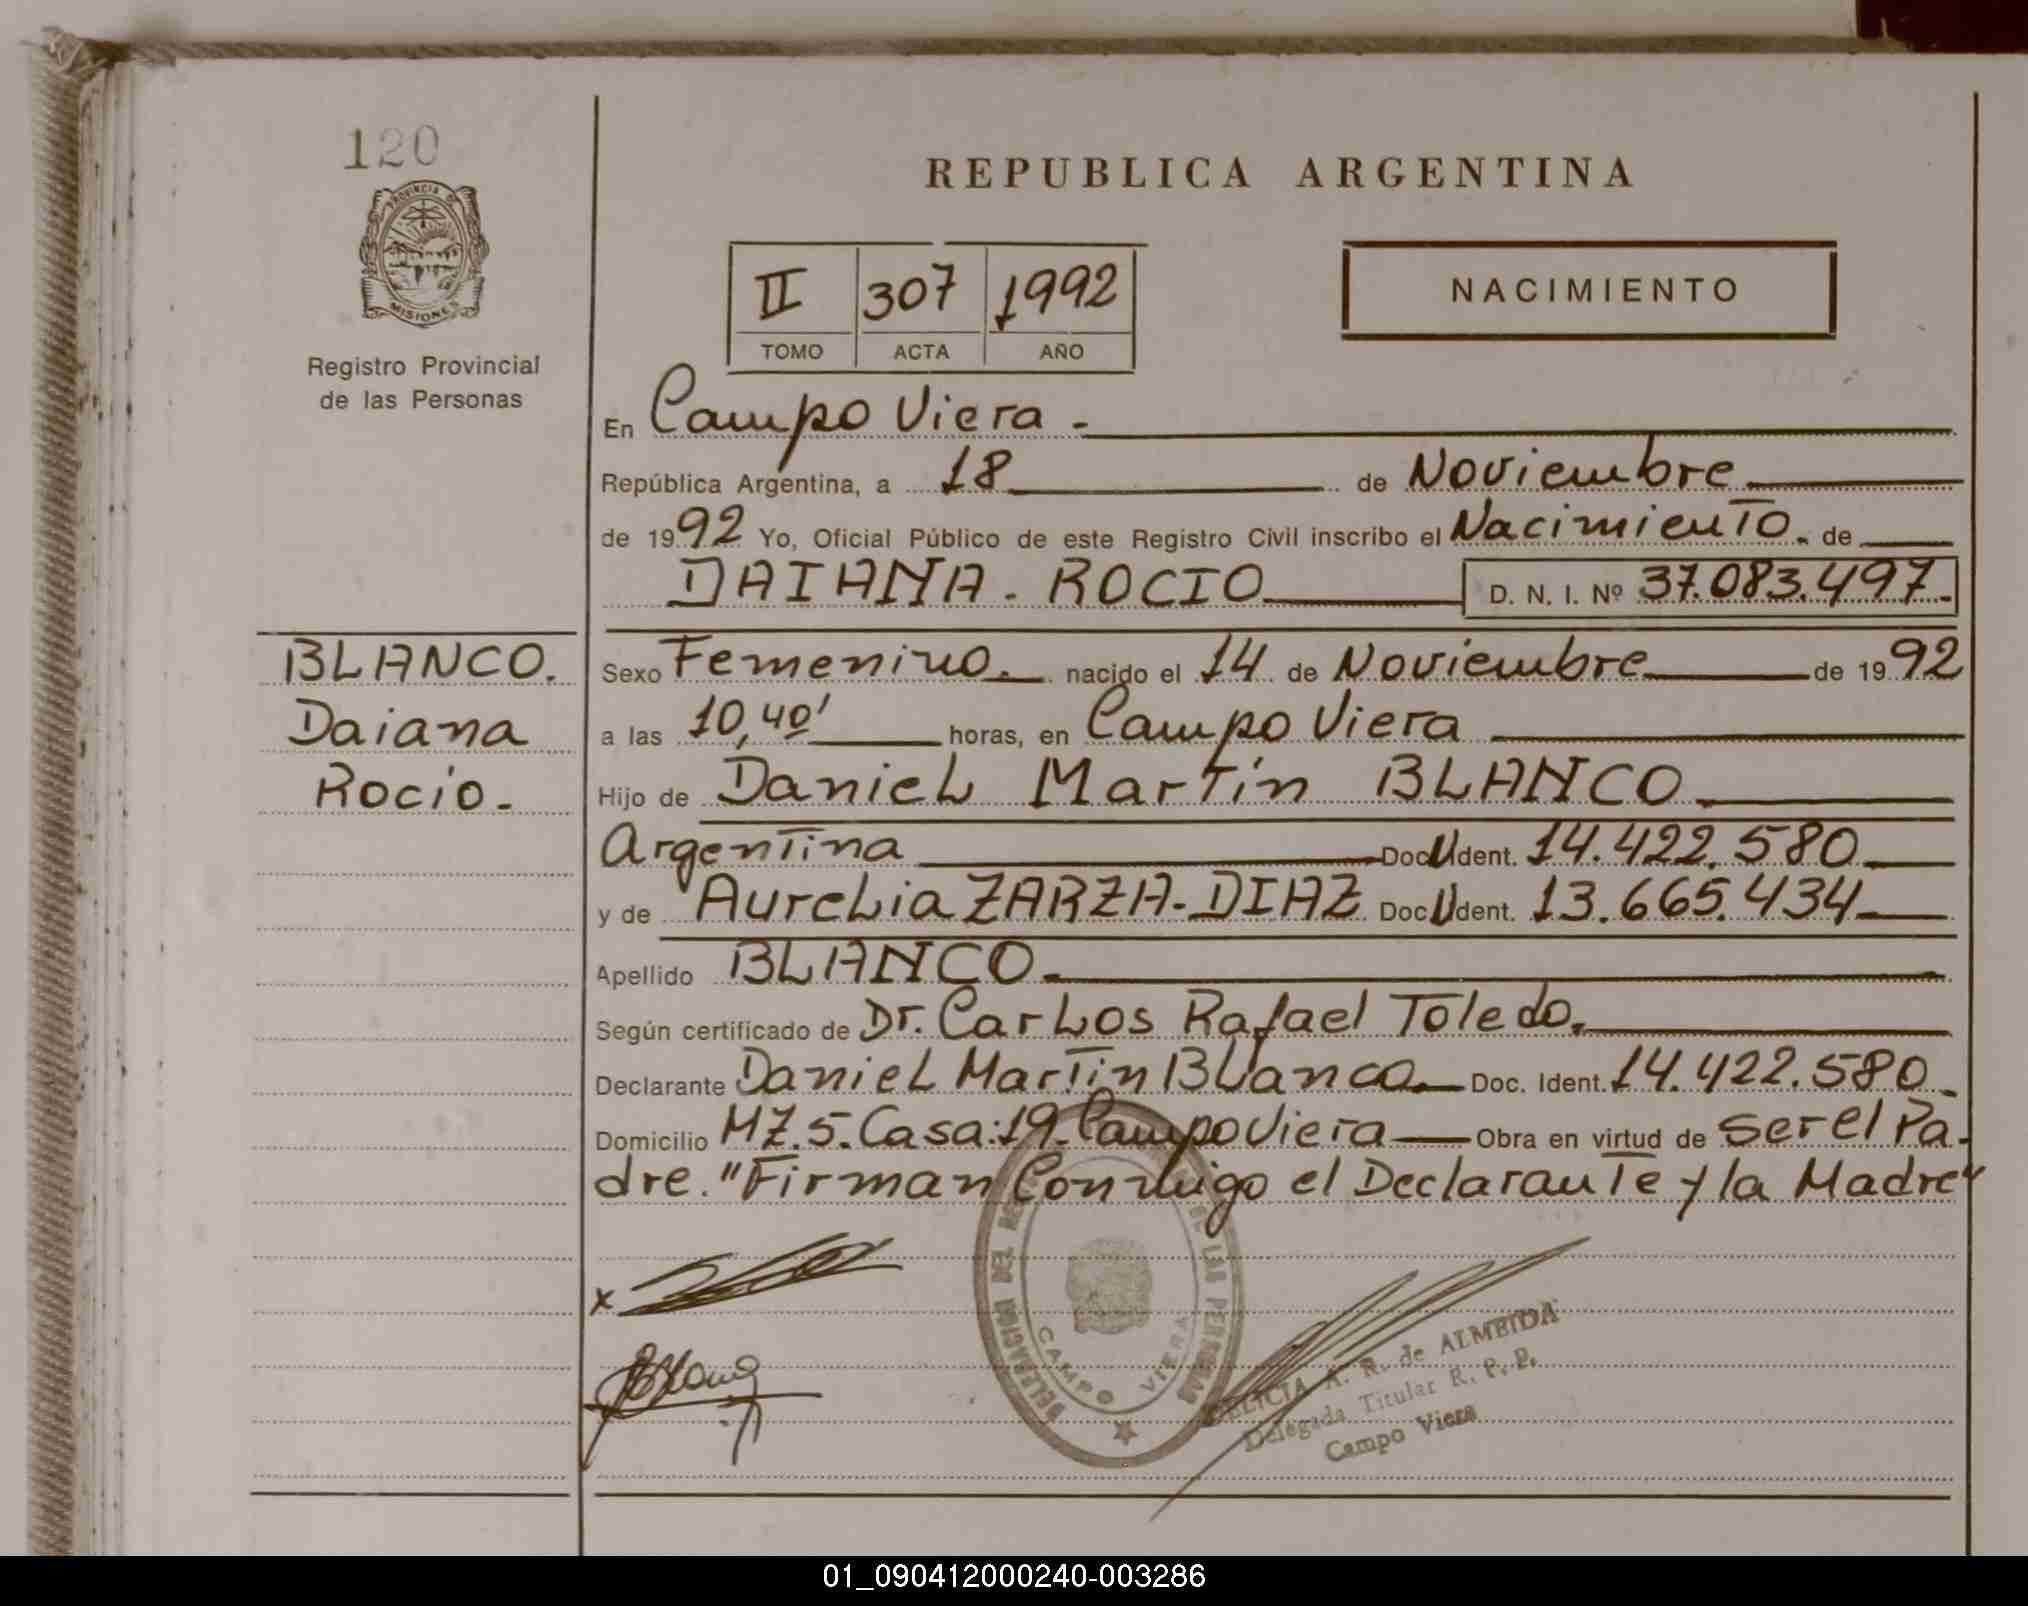 120
PROVINCIA DE
MISIONES
Registro Provincial
de las Personas
REPUBLICA ARGENTINA
II 307 1992
TOMO ACTA AÑO
NACIMIENTO
En Campo Viera.-
República Argentina, a 18 de Noviembre
de 1992 Yo, Oficial Público de este Registro Civil inscribo el Nacimiento. de
DAIANA. ROCIO D. N. I. Nº 37.083.497.
BLANCO.
Daiana
Rocio.-
Sexo Femenino. nacido el 14 de Noviembre de 1992
a las 10,40' horas, en Campo Viera
Hijo de Daniel Martín BLANCO.
Argentina Doc. U Ident. 14.422.580
y de Aurelia ZARZA-DIAZ Doc. U Ident. 13.665.434
Apellido BLANCO.
Según certificado de Dr. Carlos Rafael Toledo.
Declarante Daniel Martín Blanco. Doc. Ident. 14.422.580.
Domicilio MZ.5. Casa:19. Campo Viera Obra en virtud de ser el Pa-
dre. "Firman Conmigo el Declarante y la Madre"
x
DELEGACION DEL LAS PERSONAS
CAMPO VIERA
A. R. de ALMEIDA
Delegada Titular R. P. P.
Campo Viera
01_090412000240-003286